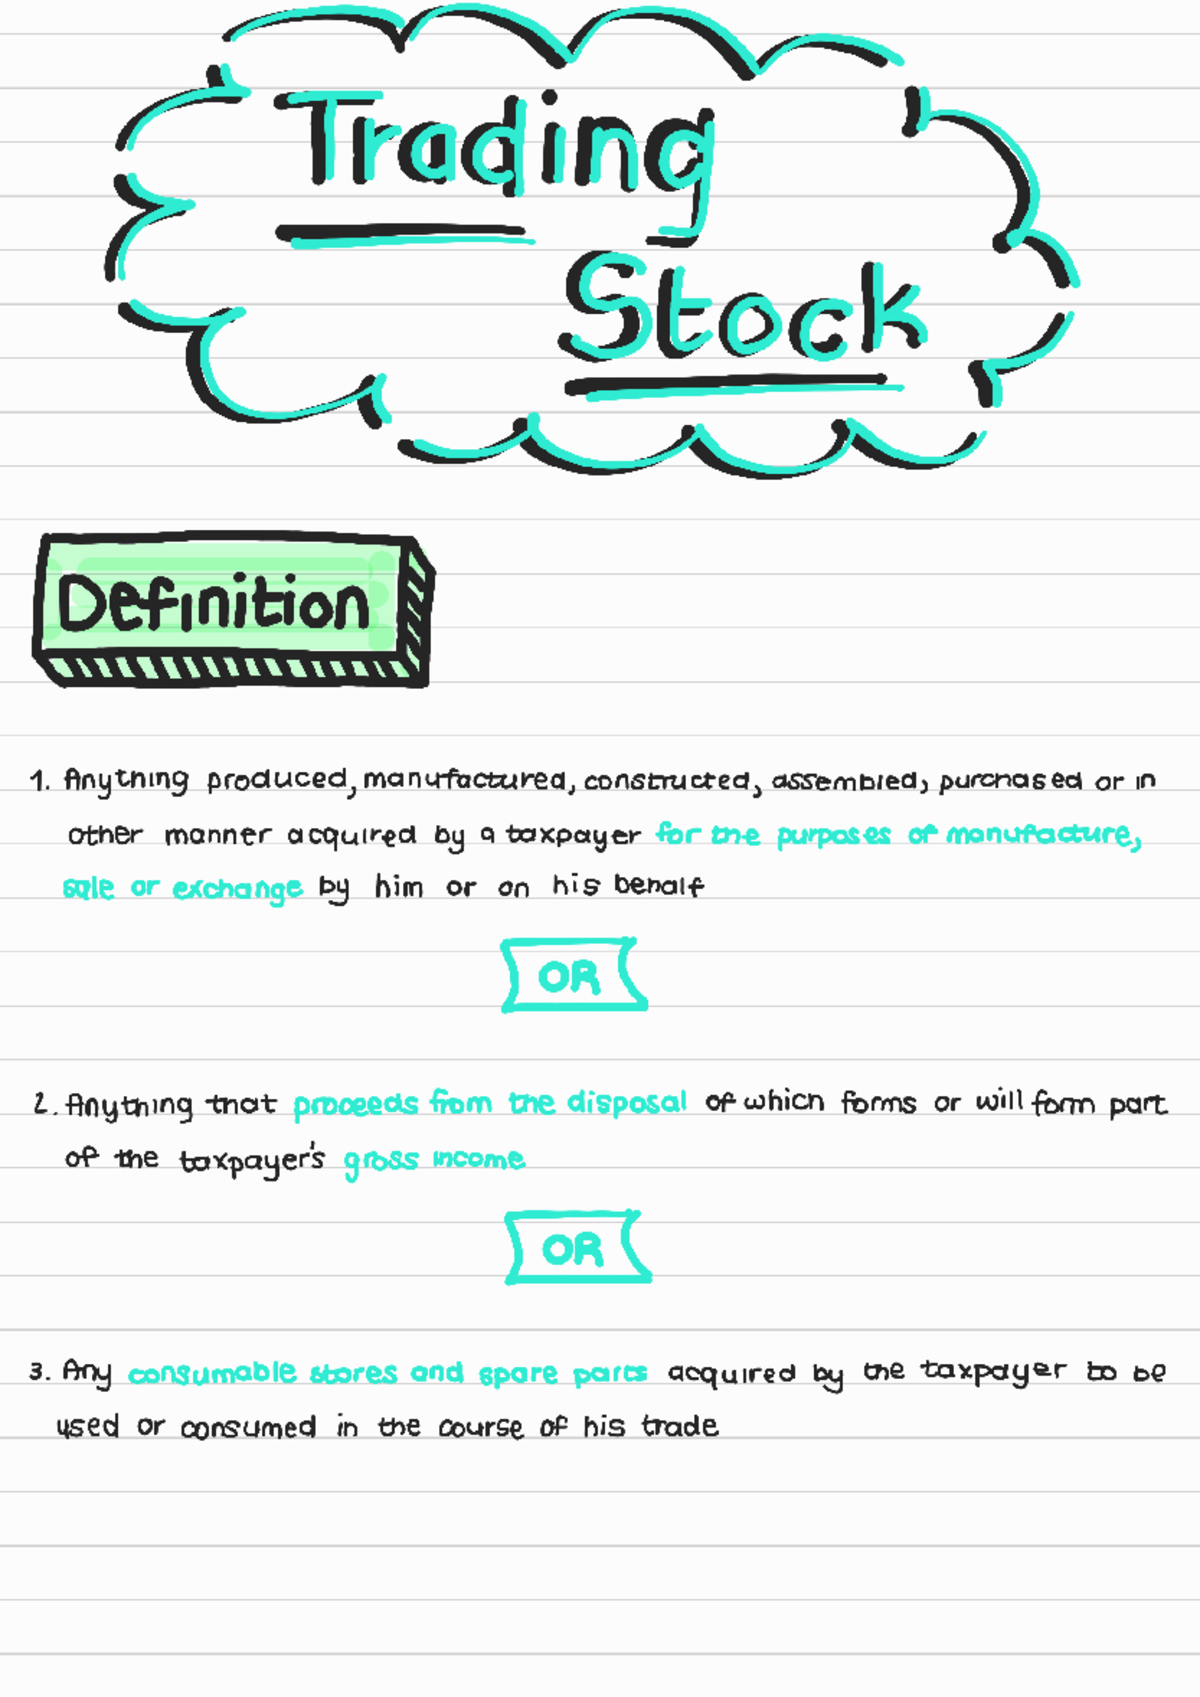 Trading
Stock
Definition
1. Anything produced, manufactured, constructed, assembled, purchased or in
other manner acquired by a taxpayer for the purposes of manufacture,
sale or exchange by him or on his behalf
OR
2. Anything that proceeds from the disposal of which forms or will form part
of the taxpayer's gross income
OR
3. Any consumable stores and spare parts acquired by the taxpayer to be
used or consumed in the course of his trade